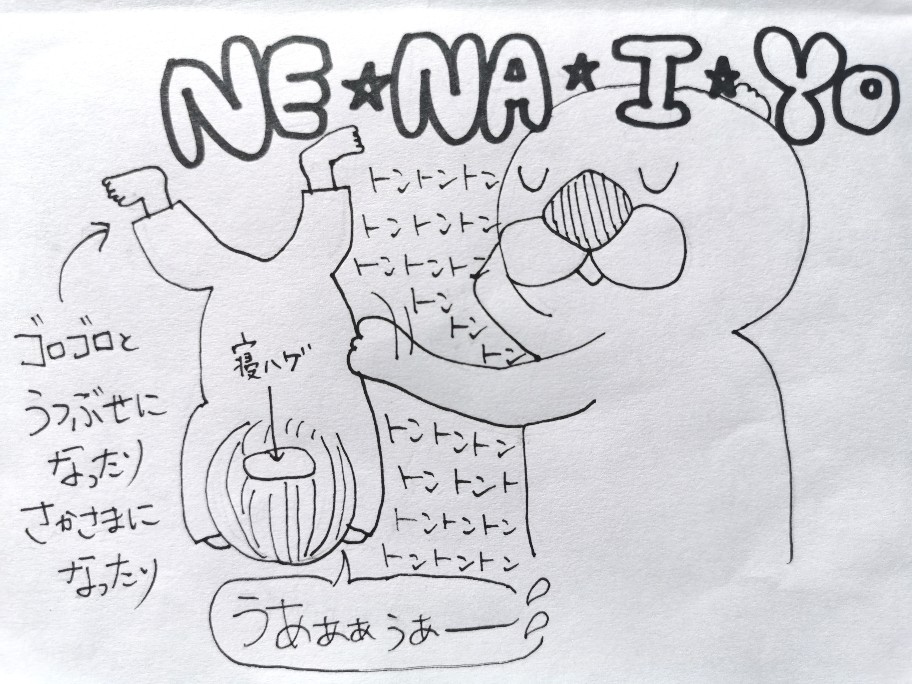 NE★NA★I★Yo
トントントン
トントントン
トントントン
トン
トン
トン
ゴロゴロと
うつぶせに
なったり
さかさまに
なったり
寝ハゲ
トントントン
トン トント
トントントン
トントントン
うあぁぁうぁー